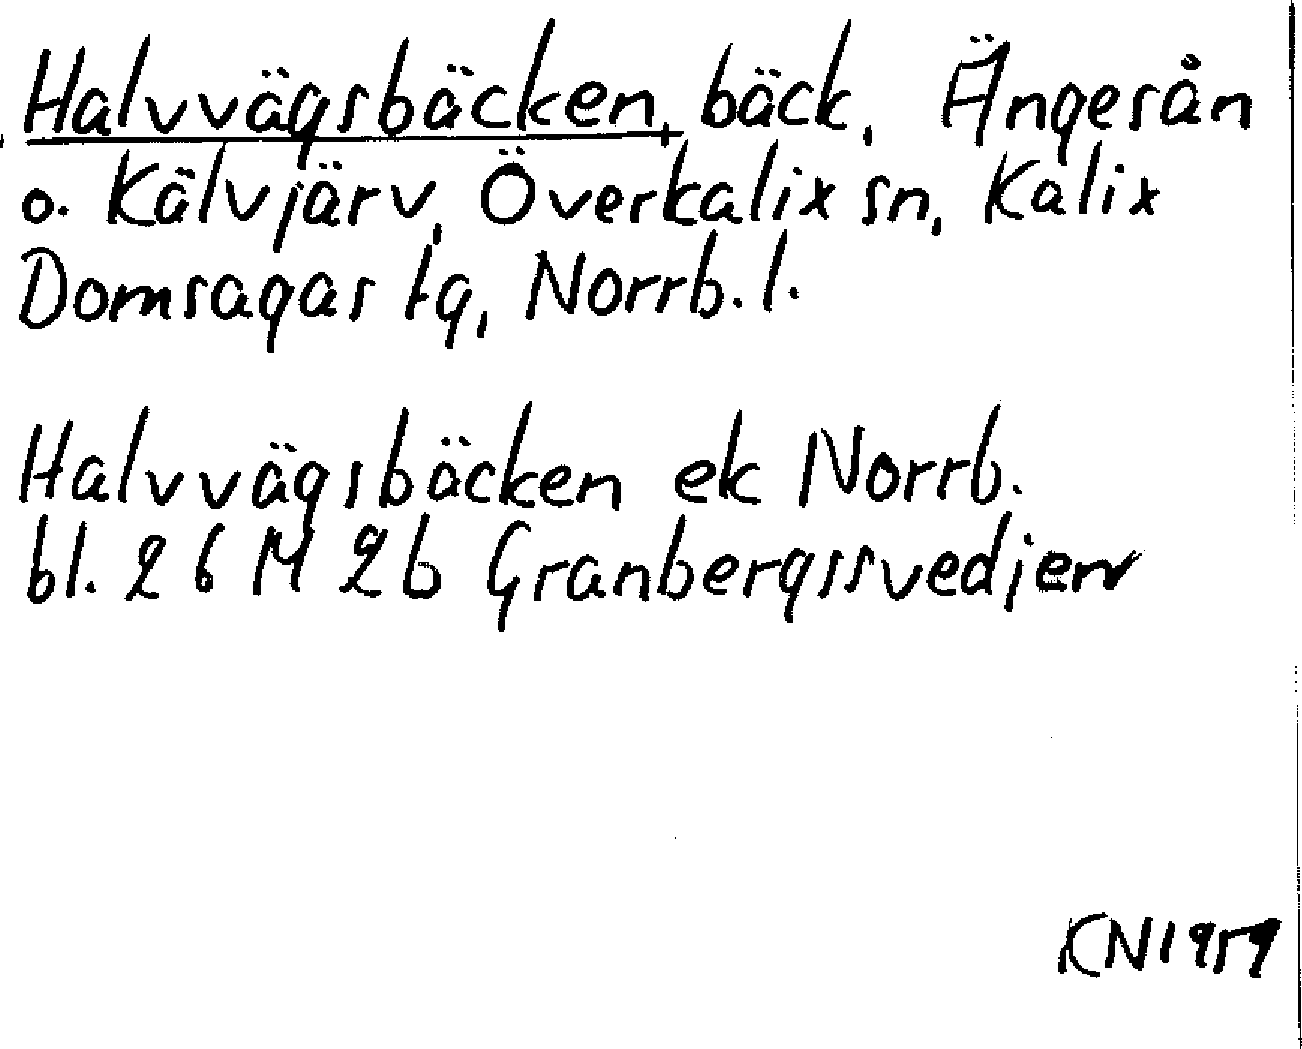 Halvvägsbäcken, bäck, Ängesån
o. Kälvjärv, Överkalix sn, Kalix
Domsagas tg, Norrb. l.
Halvvägsbäcken ek Norrb.
bl. 26 M 2b Granbergssvedjen
KN 1959